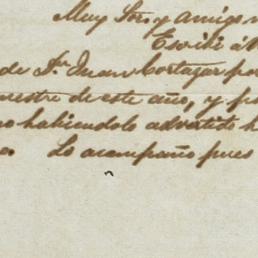 Muy Sor. y amigo
Escribi á
de Dn. Juan Cortazar por
mestre de este año, y
no habiendolo advertido h
Lo acompaño pues